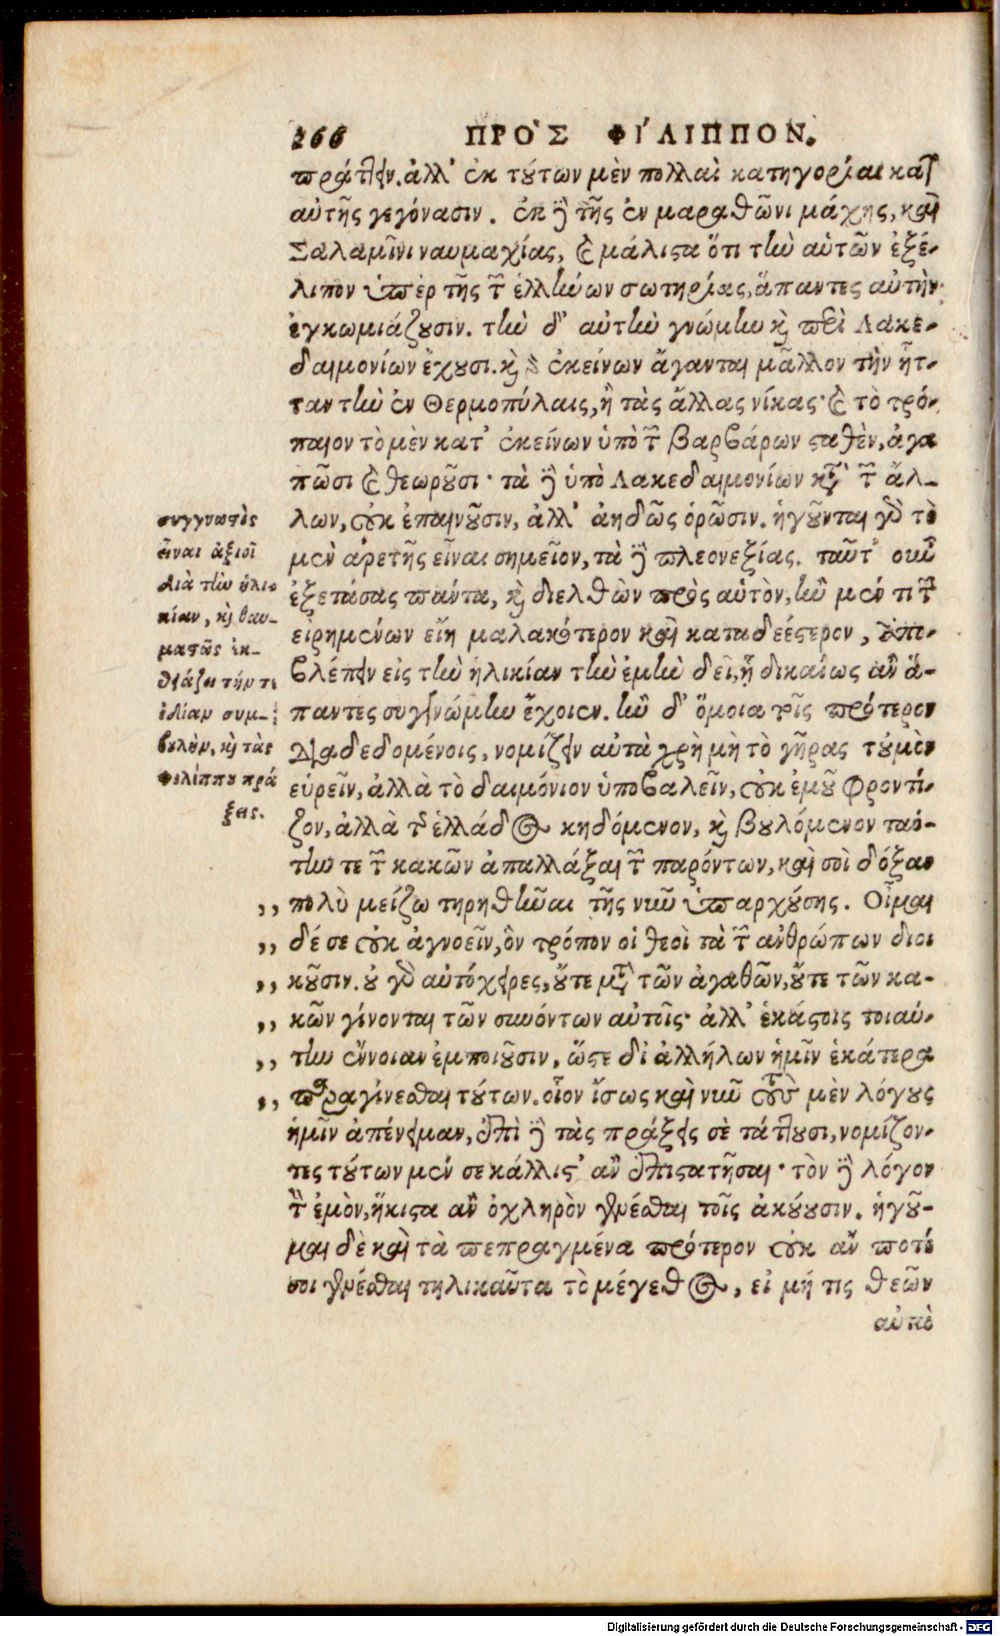 266 ΠΡΟ`Σ ΦΙ΄ΛΙΠΠΟΝ.
πράττειν. ἀλλ' ἐκ τούτων μὲν πολλαὶ κατηγορίαι κατ'
αὐτῆς γεγόνασιν. ἐκ δὲ τῆς ἐν μαραθῶνι μάχης, καὶ
Σαλαμῖνι ναυμαχίας, καὶ μάλιστα ὅτι τὴν αὑτῶν ἐξέ-
λιπον ὑπὲρ τῆς τῶν ἑλλήνων σωτηρίας, ἅπαντες αὐτὴν
ἐγκωμιάζουσιν. τὴν δ' αὐτὴν γνώμην καὶ περὶ Λακε-
δαιμονίων ἔχουσι. καὶ γὰρ ἐκείνων ἄγανται μᾶλλον τὴν ἧτ-
ταν τὴν ἐν Θερμοπύλαις, ἢ τὰς ἄλλας νίκας· καὶ τὸ τρό-
παιον τὸ μὲν κατ' ἐκείνων ὑπὸ τῶν βαρβάρων σταθὲν, ἀγα
πῶσι καὶ θεωροῦσι· τὰ δὲ ὑπὸ Λακεδαιμονίων κατὰ τῶν ἄλ-
λων, οὐκ ἐπαινοῦσιν, ἀλλ' ἀηδῶς ὁρῶσιν. ἡγοῦνται γὰρ τὸ
μὲν ἀρετῆς εἶναι σημεῖον, τὰ δὲ πλεονεξίας. ταῦτ' οὖν
ἐξετάσας πάντα, καὶ διελθὼν πρὸς αὑτὸν, ἢν μέν τι τῶν
εἰρημένων εἴη μαλακώτερον καὶ καταδεέστερον, ἐπι-
βλέπειν εἰς τὴν ἡλικίαν τὴν ἐμὴν δεῖ, ᾗ δικαίως ἂν ἅ-
παντες συγγνώμην ἔχοιεν. ἢν δ' ὅμοια τοῖς πρότερον
διαδεδομένοις, νομίζειν αὐτὰ χρὴ μὴ τὸ γῆρας τοὐμὸν
εὑρεῖν, ἀλλὰ τὸ δαιμόνιον ὑποβαλεῖν, οὐκ ἐμοῦ φροντί-
ζον, ἀλλὰ τῆς ἑλλάδος κηδόμενον, καὶ βουλόμενον ταύ-
την τε τῶν κακῶν ἀπαλλάξαι τῶν παρόντων, καὶ σοὶ δόξαν
,, πολὺ μείζω τηρηθῆναι τῆς νῦν ὑπαρχούσης. Οἶμαι
,, δέ σε οὐκ ἀγνοεῖν, ὃν τρόπον οἱ θεοὶ τὰ τῶν ἀνθρώπων διοι
,, κοῦσιν. οὐ γὰρ αὐτόχειρες, οὔτε μετὰ τῶν ἀγαθῶν, οὔτε τῶν κα-
,, κῶν γίνονται τῶν συνόντων αὐτοῖς· ἀλλ' ἑκάστοις τοιαύ-
,, την ἔννοιαν ἐμποιοῦσιν, ὥστε δι' ἀλλήλων ἡμῖν ἑκάτερα
,, παραγίνεσθαι τούτων. οἷον ἴσως καὶ νῦν τοὺς μὲν λόγους
ἡμῖν ἀπένειμαν, ἐπὶ δὲ τὰς πράξεις σὲ τάττουσι, νομίζον-
τες τούτων μὲν σε κάλλιστ' ἂν ἐπιστατῆσαι· τὸν δὲ λόγον
τὸν ἐμὸν, ἥκιστα ἂν ὀχληρὸν γενέσθαι τοῖς ἀκούουσιν. ἡγοῦ-
μαι δὲ καὶ τὰ πεπραγμένα πρότερον οὐκ ἄν ποτέ
σοι γενέσθαι τηλικαῦτα τὸ μέγεθος, εἰ μή τις θεῶν
αὐτὰ
συγγνωστὸς
εἶναι ἀξιοῖ
διὰ τὴν ἡλι-
κίαν, καὶ θαυ-
μαστῶς ἐκ-
θειάζει τήν τε
ἰδίαν συμ-
βουλὴν, καὶ τὰς
Φιλίππου πρά
ξεις.
Digitalisierung gefördert durch die Deutsche Forschungsgemeinschaft - DFG